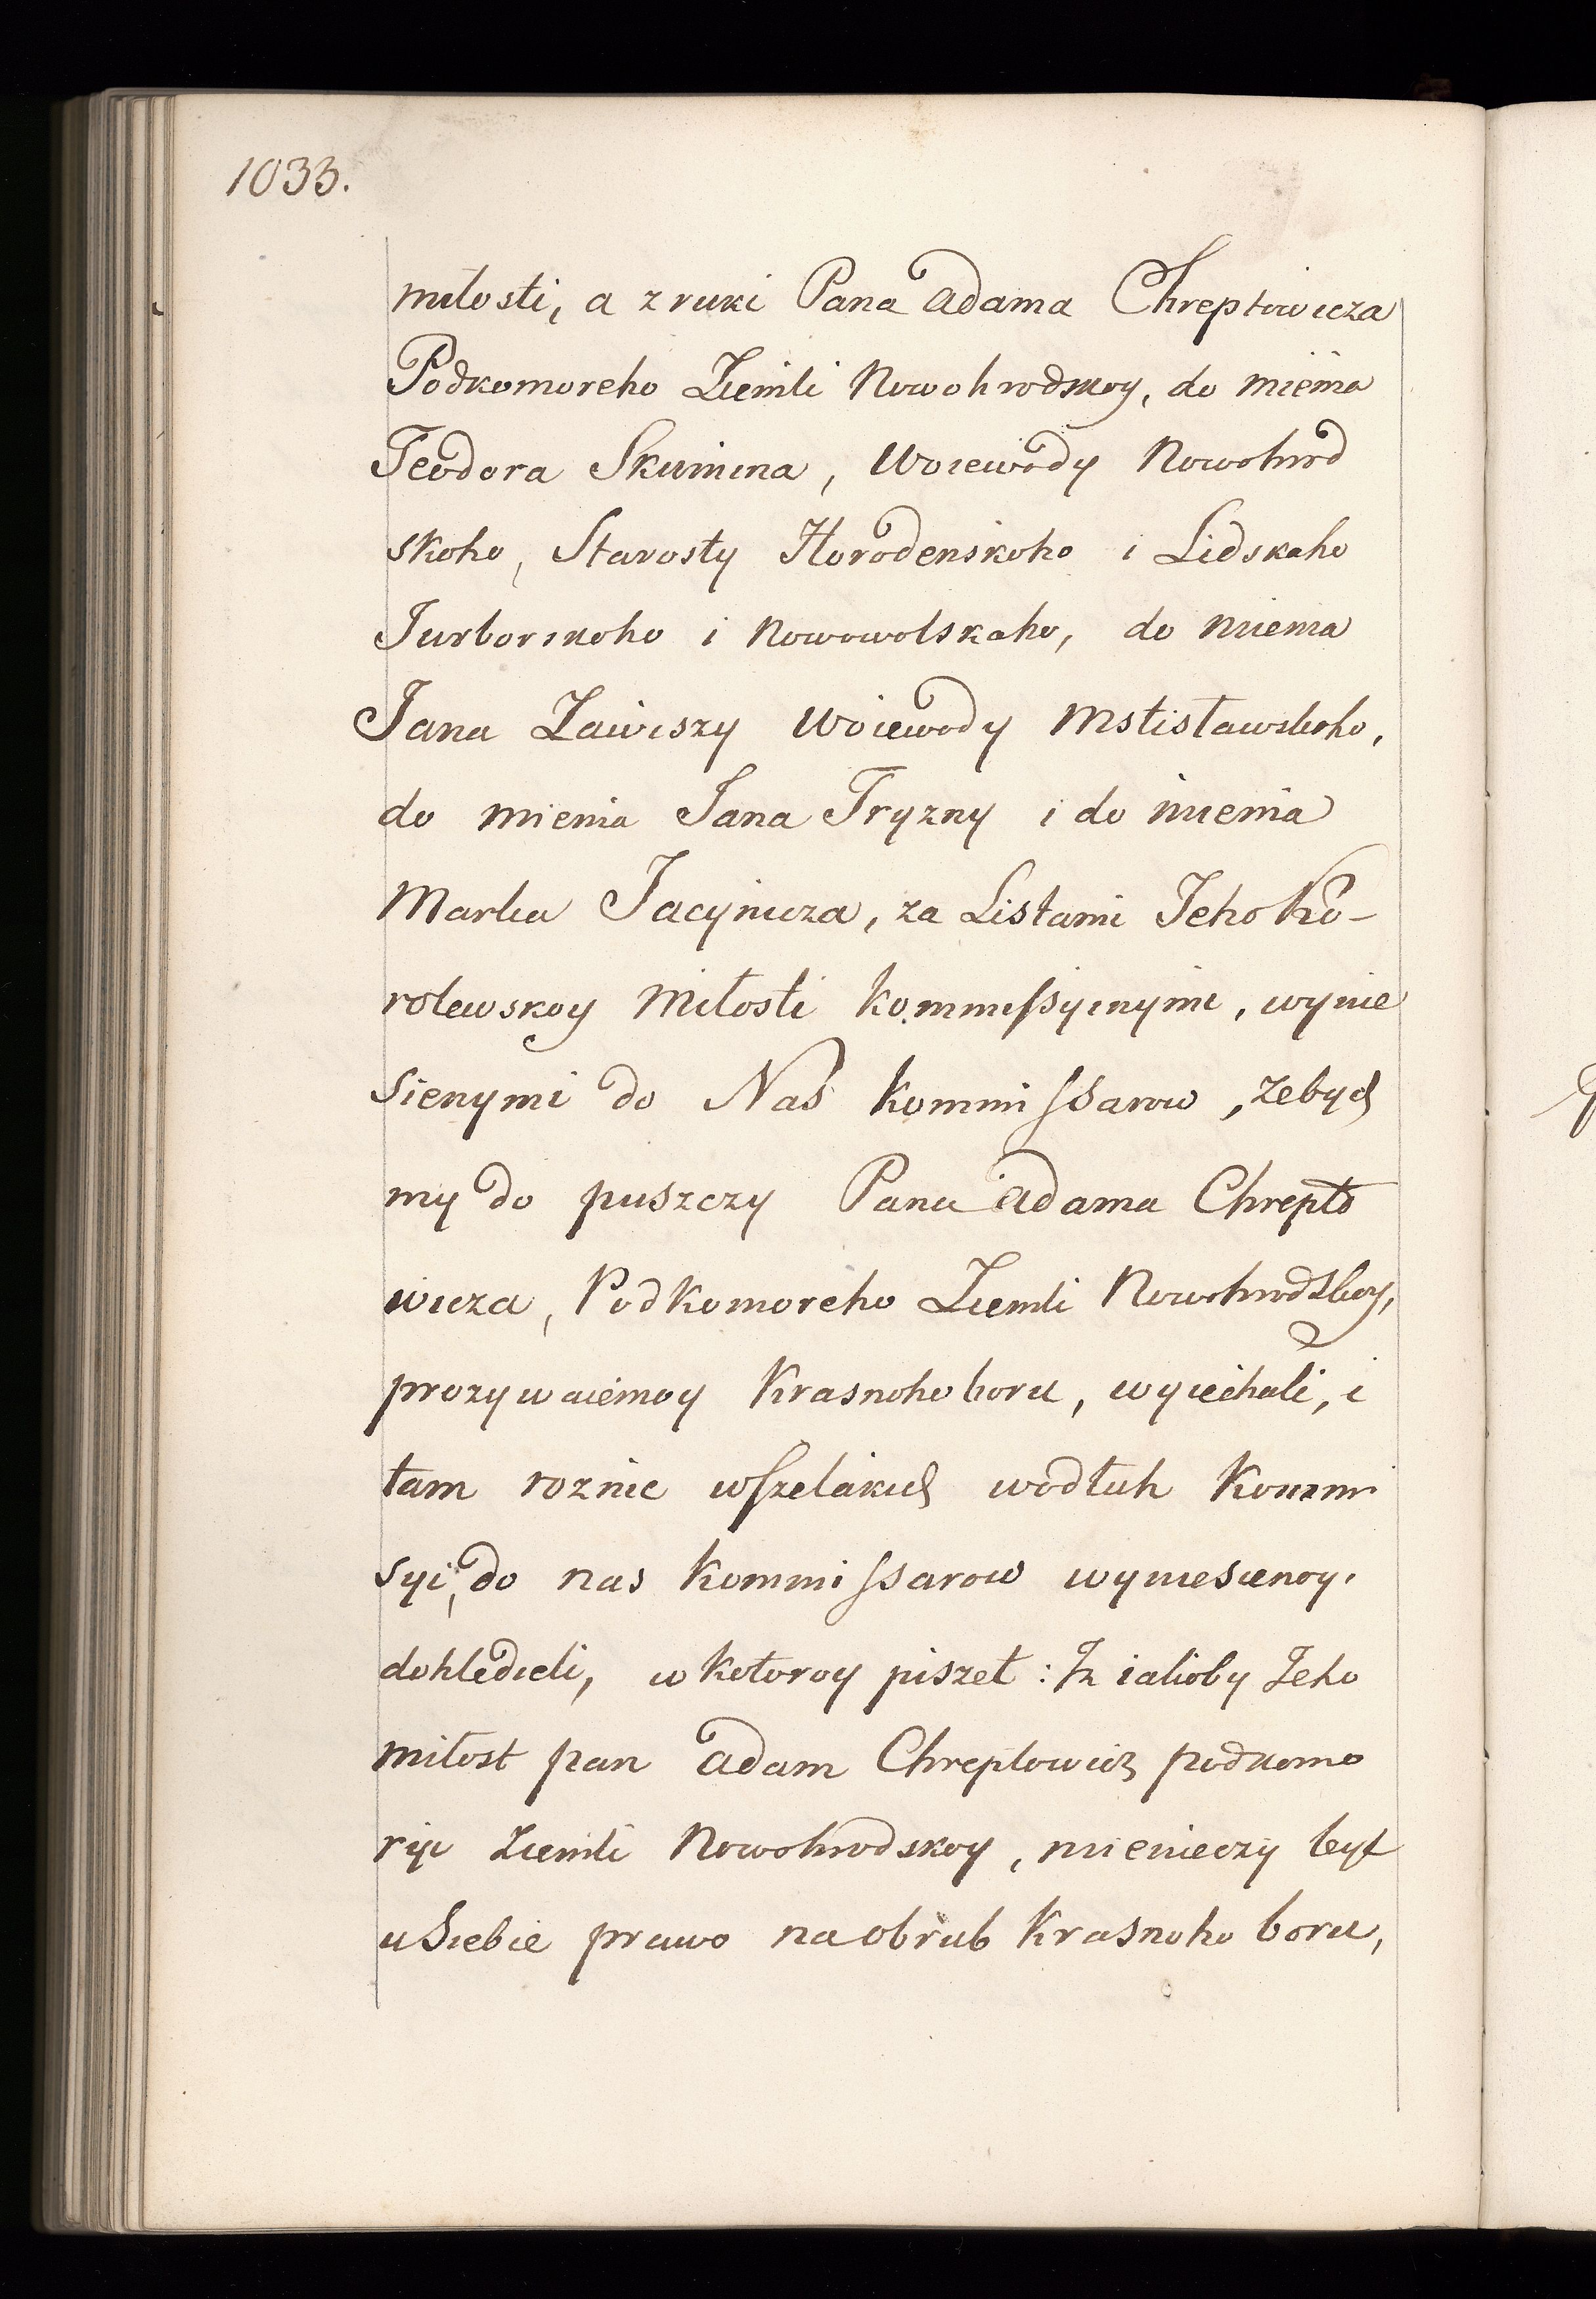 1033.
miłosti, a z ruki Pana Adama Chreptowicza
Podkomoreho Ziemli Nowohrodskoy, do mienia
Teodora Skumina, Woiewody Nowohrod
skoho, Starosty Horodenskoho i Lidskaho
Jurborskoho i Nowowolskaho, do mienia
Jana Zawiszy Woiewody Mstisławskoho,
do mienia Jana Tryzny i do mienia
Marka Jacynicza, za Listami Jeho Ko-
rolewskoy Miłosti kommissyinymi, wynie
sienymi do Nas kommissarow, żebych
my do puszczy Pana Adama Chrepto
wicza, Podkomoreho Ziemli Nowohrodskoy,
prozywaiemoy Krasnoho boru, wyiechali, i
tam roznic wszelakich wodłuh Kommi
syi, do nas kommissarow wyniesienoy,
dohledieli, w kotoroy piszet: Iż iakoby Jeho
miłost pan Adam Chreptowicz podkomo
ryi Ziemli Nowohrodskoy, mienieczy byt
u Siebie prawo na obrub Krasnoho boru,